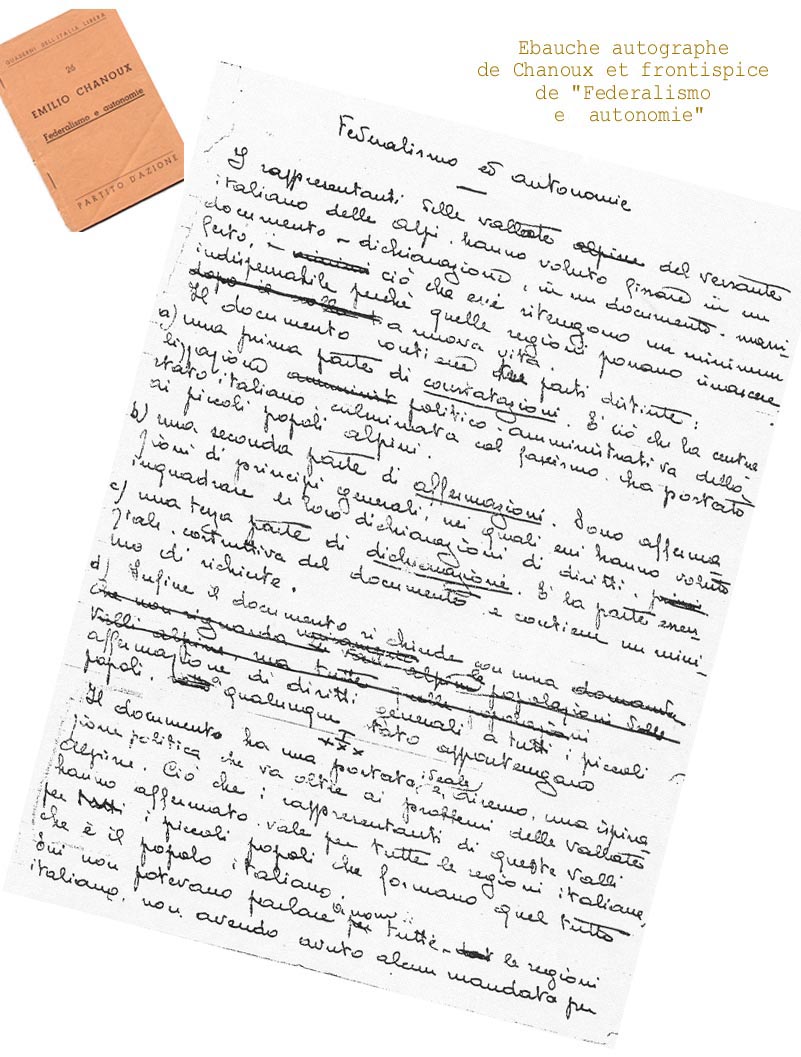 QUADERNI DELL'ITALIA LIBERA
26
EMILIO CHANOUX
Federalismo e autonomie
PARTITO D'AZIONE
Ebauche autographe
de Chanoux et frontispice
de "Federalismo
e autonomie"
Federalismo ed autonomie
I rappresentanti delle vallate alpine del versante
italiano delle alpi, hanno voluto fissare in un
documento - dichiarazione, in un documento - mani-
festo, ciò che essi ritengono un minimum
indispensabile perché quelle regioni possano rinascere
dopo il a nuova vita.
Il documento contiene parti distinte:
a) una prima parte di constatazioni. È ciò che la centra
lizzazione politico-amministrativa dello
stato italiano culminata col fascismo, ha portato
ai piccoli popoli alpini.
b) una seconda parte di affermazioni. Sono afferma
zioni di principi generali, nei quali essi hanno voluto
inquadrare le loro dichiarazioni di diritti.
c) una terza parte di dichiarazione. È la parte essen
ziale, costruttiva del documento e contiene un mini-
mo di richieste.
d) Infine il documento si chiude con una domanda
che non riguarda le popolazioni delle
valli alpine, ma tutte quelle popolazioni
affermazione di diritti generali a tutti i piccoli
popoli, a qualunque stato appartengano
xxx
Il documento ha una portata ideale, e, diremo, una ispira
zione politica che va oltre ai problemi delle vallate
alpine. Ciò che i rappresentanti di queste valli
hanno affermato vale per tutte le regioni italiane,
per tutti i piccoli popoli che formano quel tutto
che è il popolo italiano.
Essi non potevano parlare a nome di tutte le regioni
italiane, non avendo avuto alcun mandato per